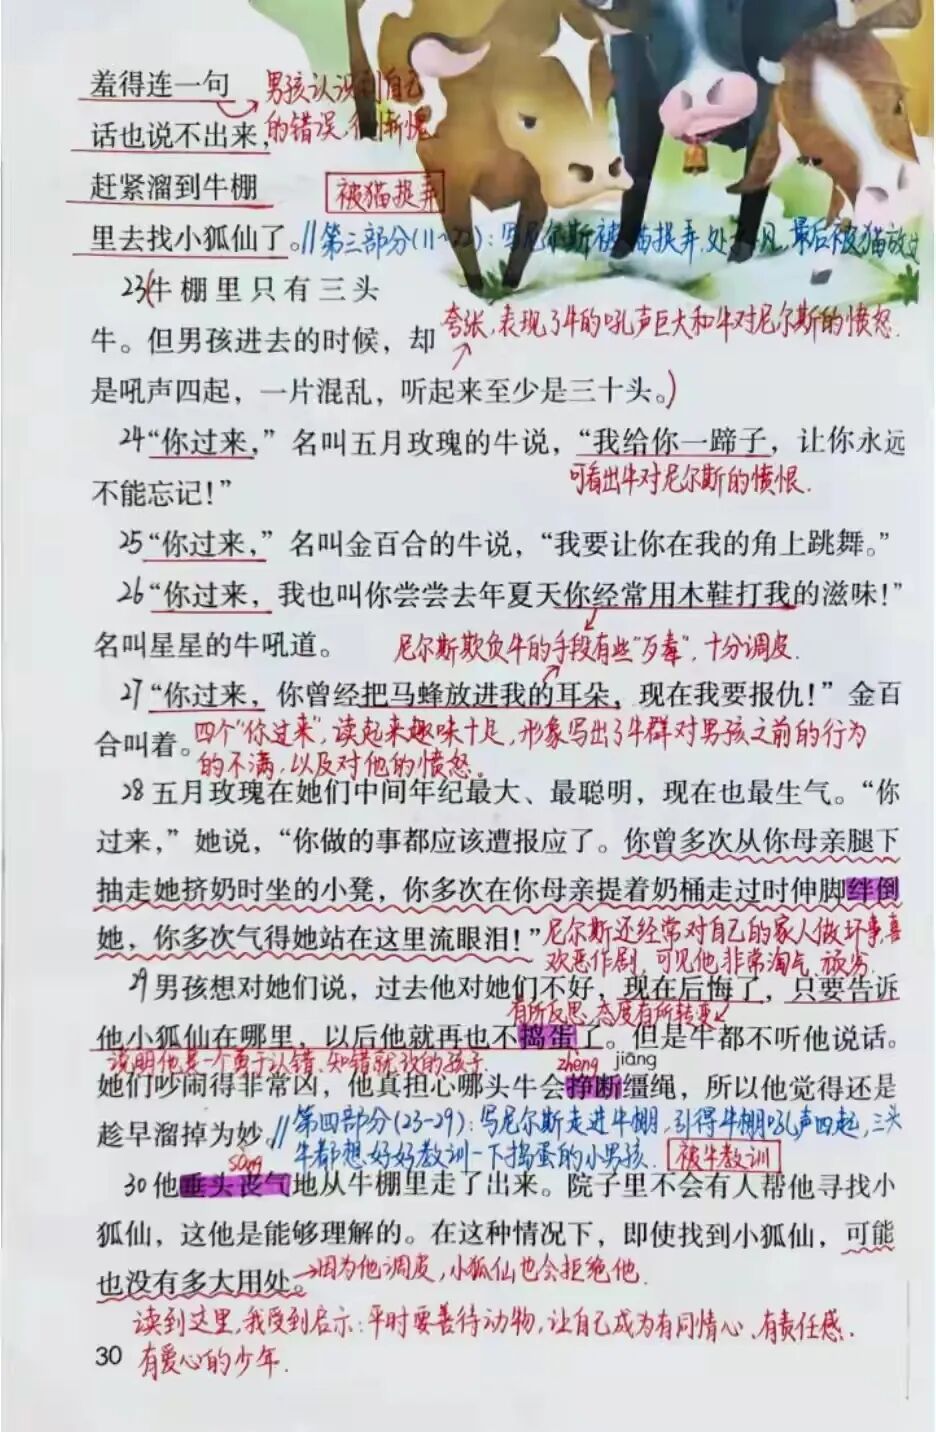 羞得连一句
男孩认识到自己
话也说不出来，
的错误，很惭愧
赶紧溜到牛棚
被猫捉弄
里去找小狐仙了。
//第三部分(11-22)：写尼尔斯被猫捉弄，处于下风，最后被猫放过
23(牛棚里只有三头
夸张，表现了牛的吼声巨大和牛对尼尔斯的愤怒.
牛。但男孩进去的时候，却
是吼声四起，一片混乱，听起来至少是三十头。)
24“你过来，”名叫五月玫瑰的牛说，“我给你一蹄子，让你永远
可看出牛对尼尔斯的愤恨.
不能忘记！”
25“你过来，”名叫金百合的牛说，“我要让你在我的角上跳舞。”
26“你过来，我也叫你尝尝去年夏天你经常用木鞋打我的滋味！”
名叫星星的牛吼道。
尼尔斯欺负牛的手段有些“歹毒”，十分调皮.
27“你过来，你曾经把马蜂放进我的耳朵，现在我要报仇！”金百
合叫着。
四个“你过来”，读起来趣味十足，形象写出了牛群对男孩之前的行为
的不满，以及对他的愤怒。
28五月玫瑰在她们中间年纪最大、最聪明，现在也最生气。“你
过来，”她说，“你做的事都应该遭报应了。你曾多次从你母亲腿下
抽走她挤奶时坐的小凳，你多次在你母亲提着奶桶走过时伸脚绊倒
她，你多次气得她站在这里流眼泪！”
尼尔斯还经常对自己的家人做坏事，喜
欢恶作剧，可见他非常淘气、顽劣.
29男孩想对她们说，过去他对她们不好，现在后悔了，只要告诉
有所反思，态度有所转变
他小狐仙在哪里，以后他就再也不捣蛋了。但是牛都不听他说话。
说明他是一个勇于认错、知错就改的孩子.
zhèng jiāng
她们吵闹得非常凶，他真担心哪头牛会挣断缰绳，所以他觉得还是
趁早溜掉为妙。
//第四部分(23-29)：写尼尔斯走进牛棚，引得牛棚吼声四起，三头
牛都想好好教训一下捣蛋的小男孩.
被牛教训
sàng
30他垂头丧气地从牛棚里走了出来。院子里不会有人帮他寻找小
狐仙，这他是能够理解的。在这种情况下，即使找到小狐仙，可能
也没有多大用处。
→因为他调皮，小狐仙也会拒绝他.
读到这里，我受到启示：平时要善待动物，让自己成为有同情心、有责任感、
有爱心的少年.
30